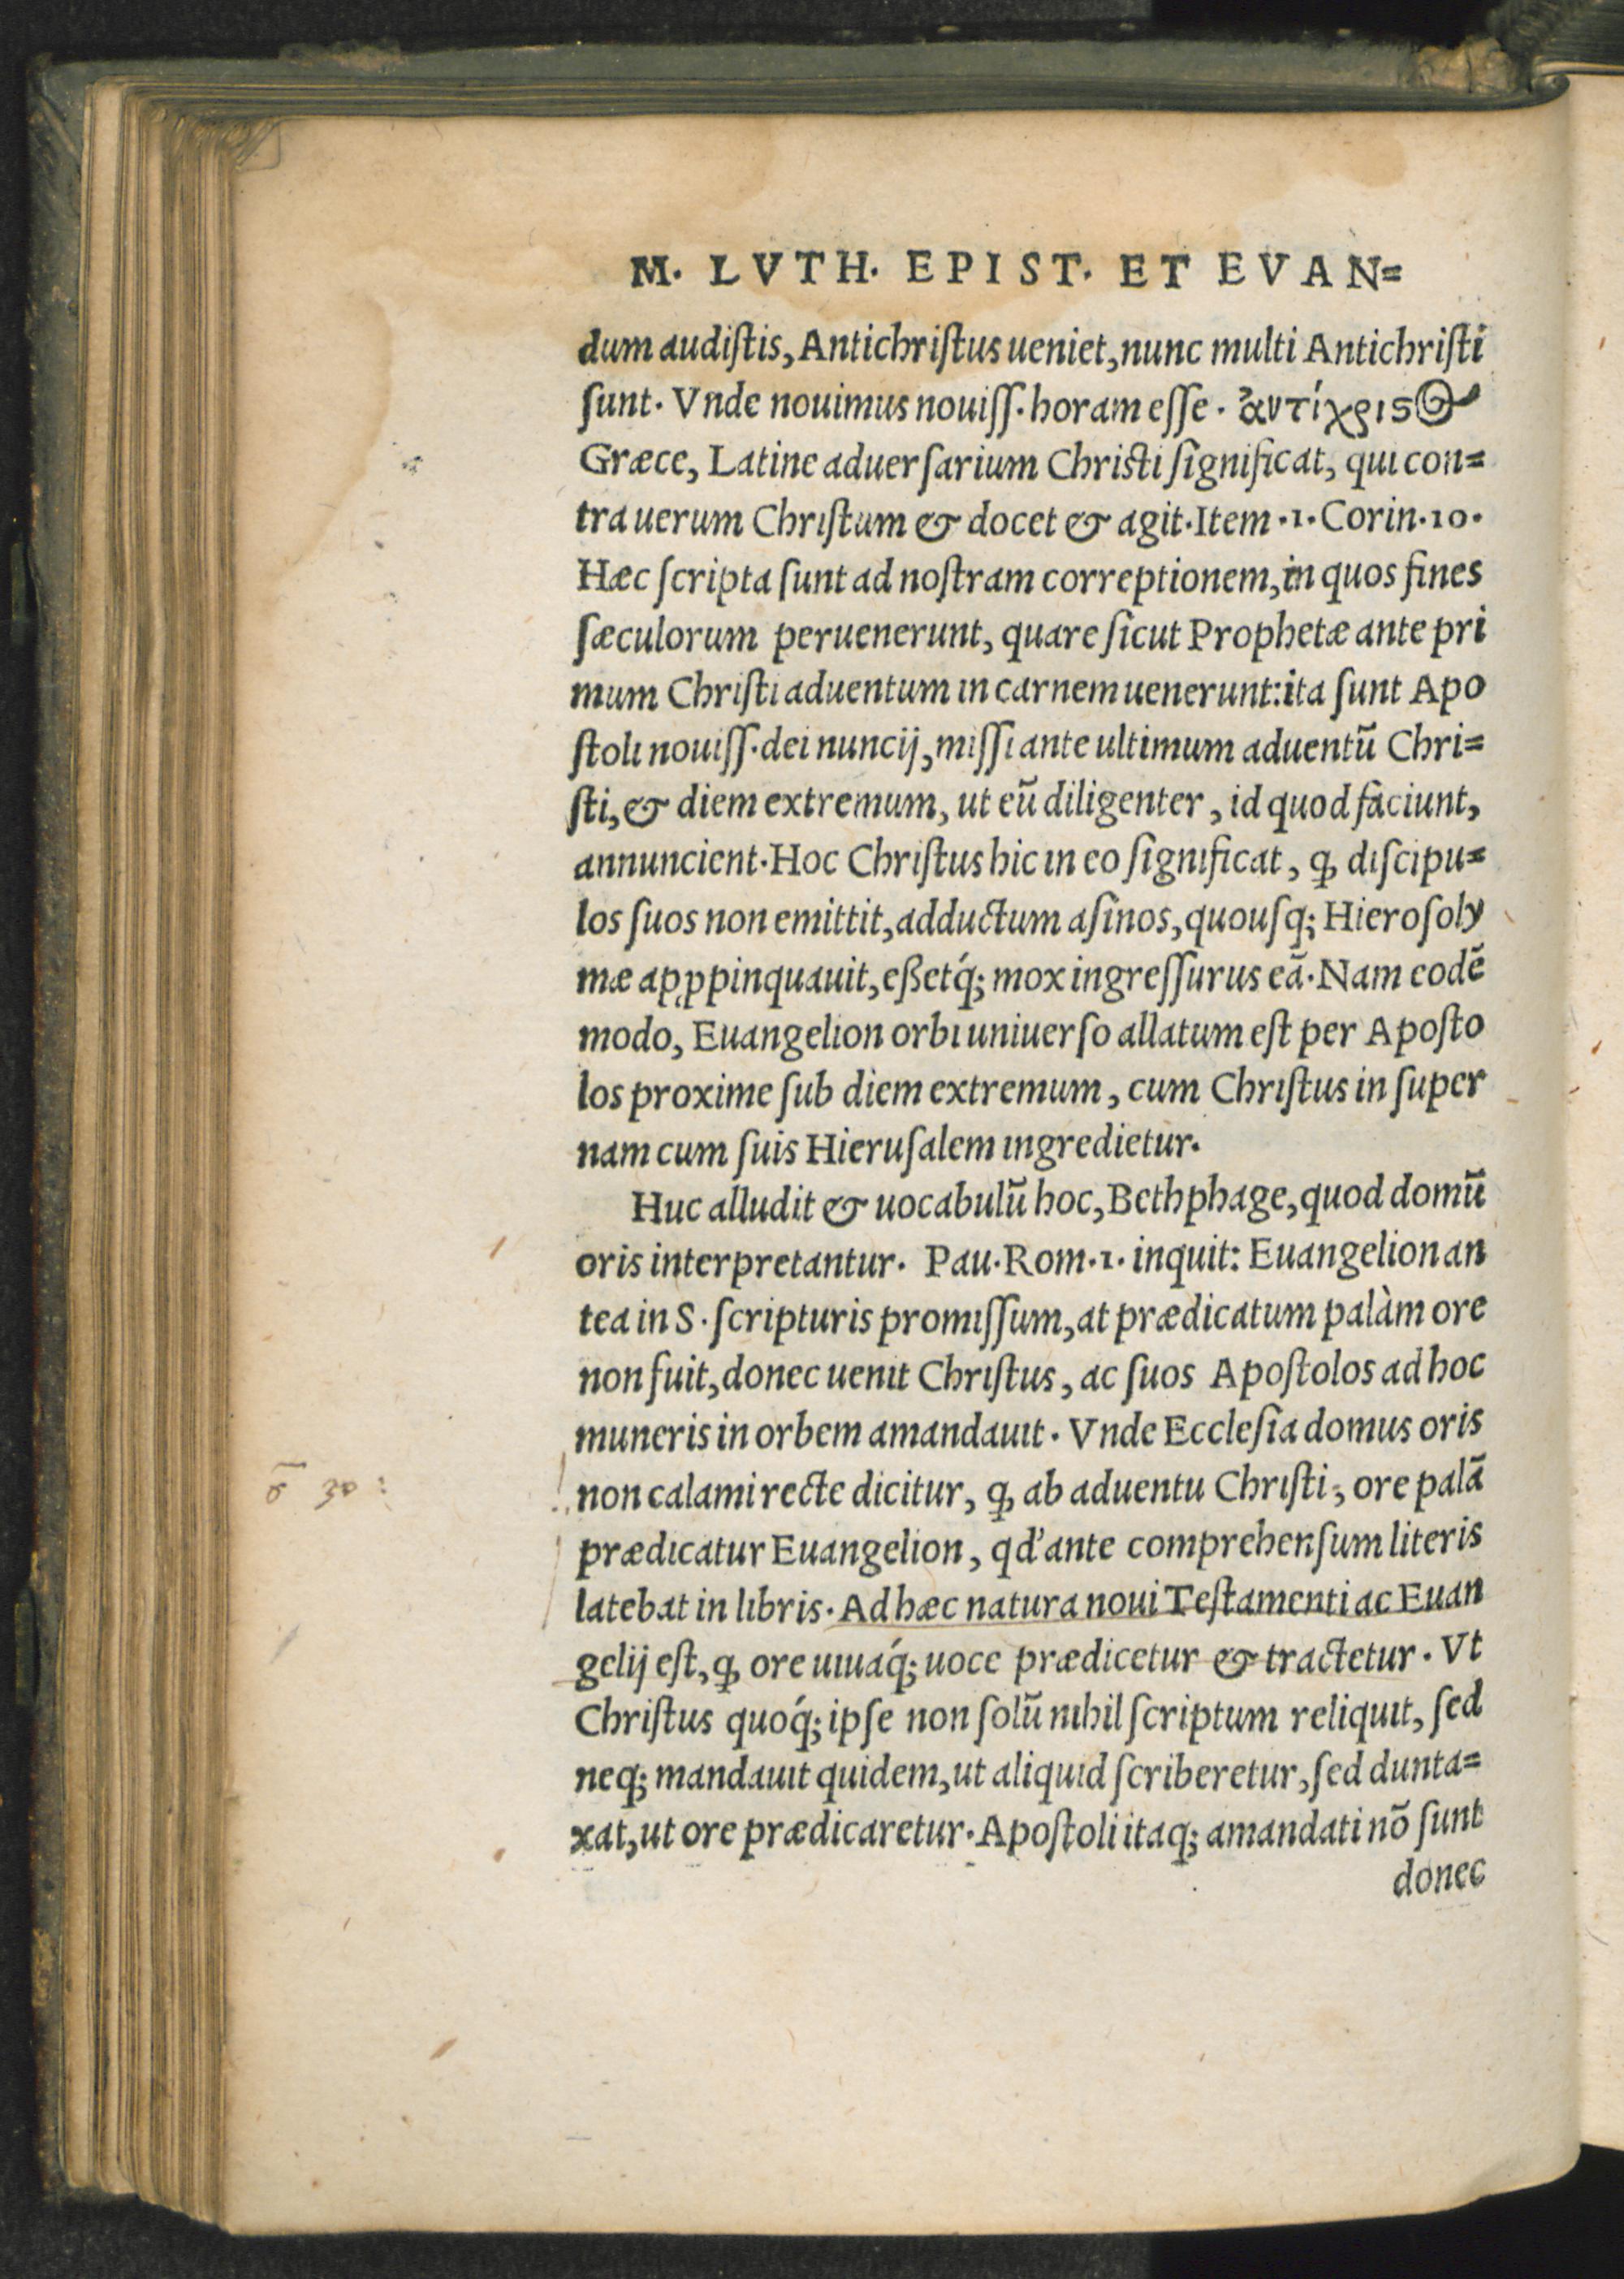 M. LVTH. EPIST. ET EVAN=
dum audiſtis, Antichriſtus ueniet, nunc multi Antichriſti
ſunt. Vnde nouimus nouiſſ. horam eſſe. ἀντίχριςος
Græce, Latine aduerſarium Chriſti ſignificat, qui con=
tra uerum Chriſtum & docet & agit. Item .1. Corin. 10.
Hæc ſcripta ſunt ad noſtram correptionem, in quos fines
ſæculorum peruenerunt, quare ſicut Prophetæ ante pri
mum Chriſti aduentum in carnem uenerunt: ita ſunt Apo
ſtoli nouiſſ. dei nuncij, miſſi ante ultimum aduentū Chri=
ſti, & diem extremum, ut eū diligenter, id quod faciunt,
annuncient. Hoc Chriſtus hic in eo ſignificat, ꝙ diſcipu=
los ſuos non emittit, adductum aſinos, quouſq; Hieroſoly
mæ apꝓpinquauit, eßetq́; mox ingreſſurus eā. Nam eodē
modo, Euangelion orbi uniuerſo allatum eſt per Apoſto
los proxime ſub diem extremum, cum Chriſtus in ſuper
nam cum ſuis Hieruſalem ingredietur.
Huc alludit & uocabulū hoc, Bethphage, quod domū
oris interpretantur. Pau. Rom. 1. inquit: Euangelion an
tea in S. ſcripturis promiſſum, at prædicatum palàm ore
non fuit, donec uenit Chriſtus, ac ſuos Apoſtolos ad hoc
muneris in orbem amandauit. Vnde Eccleſia domus oris
non calami recte dicitur, ꝙ ab aduentu Chriſti, ore palā
prædicatur Euangelion, qd' ante comprehenſum literis
latebat in libris. Ad hæc natura noui Teſtamenti ac Euan
gelij eſt, ꝙ ore uiuaq́; uoce prædicetur & tractetur. Vt
Chriſtus quoq́; ipſe non ſolū nihil ſcriptum reliquit, ſed
neq; mandauit quidem, ut aliquid ſcriberetur, ſed dunta=
xat, ut ore prædicaretur. Apoſtoli itaq; amandati nō ſunt
donec